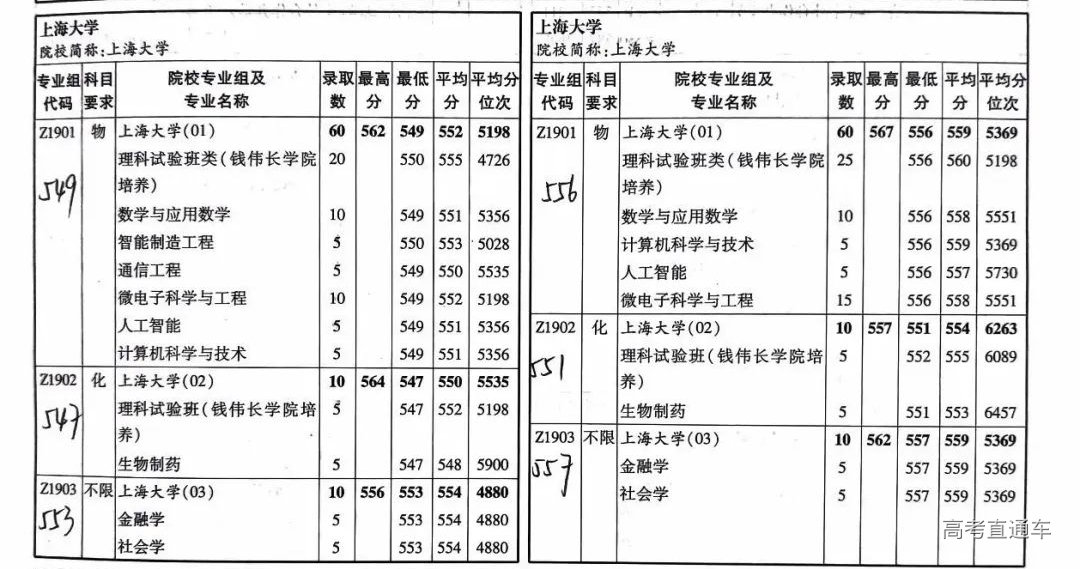 上海大学
院校简称:上海大学
专业组 科目 院校专业组及 录取 最高 最低 平均 平均分
代码 要求 专业名称 数 分 分 分 位次
Z1901 物 上海大学(01) 60 562 549 552 5198
理科试验班类(钱伟长学院 20 550 555 4726
培养)
549
数学与应用数学 10 549 551 5356
智能制造工程 5 550 553 5028
通信工程 5 549 550 5535
微电子科学与工程 10 549 552 5198
人工智能 5 549 551 5356
计算机科学与技术 5 549 551 5356
Z1902 化 上海大学(02) 10 564 547 550 5535
理科试验班(钱伟长学院培 5 547 552 5198
547
养)
生物制药 5 547 548 5900
Z1903 不限 上海大学(03) 10 556 553 554 4880
553
金融学 5 553 554 4880
社会学 5 553 554 4880
上海大学
院校简称:上海大学
专业组 科目 院校专业组及 录取 最高 最低 平均 平均分
代码 要求 专业名称 数 分 分 分 位次
Z1901 物 上海大学(01) 60 567 556 559 5369
理科试验班类(钱伟长学院 25 556 560 5198
培养)
556
数学与应用数学 10 556 558 5551
计算机科学与技术 5 556 559 5369
人工智能 5 556 557 5730
微电子科学与工程 15 556 558 5551
Z1902 化 上海大学(02) 10 557 551 554 6263
理科试验班(钱伟长学院培 5 552 555 6089
551
养)
生物制药 5 551 553 6457
Z1903 不限 上海大学(03) 10 562 557 559 5369
金融学 5 557 559 5369
557
社会学 5 557 559 5369
高考直通车